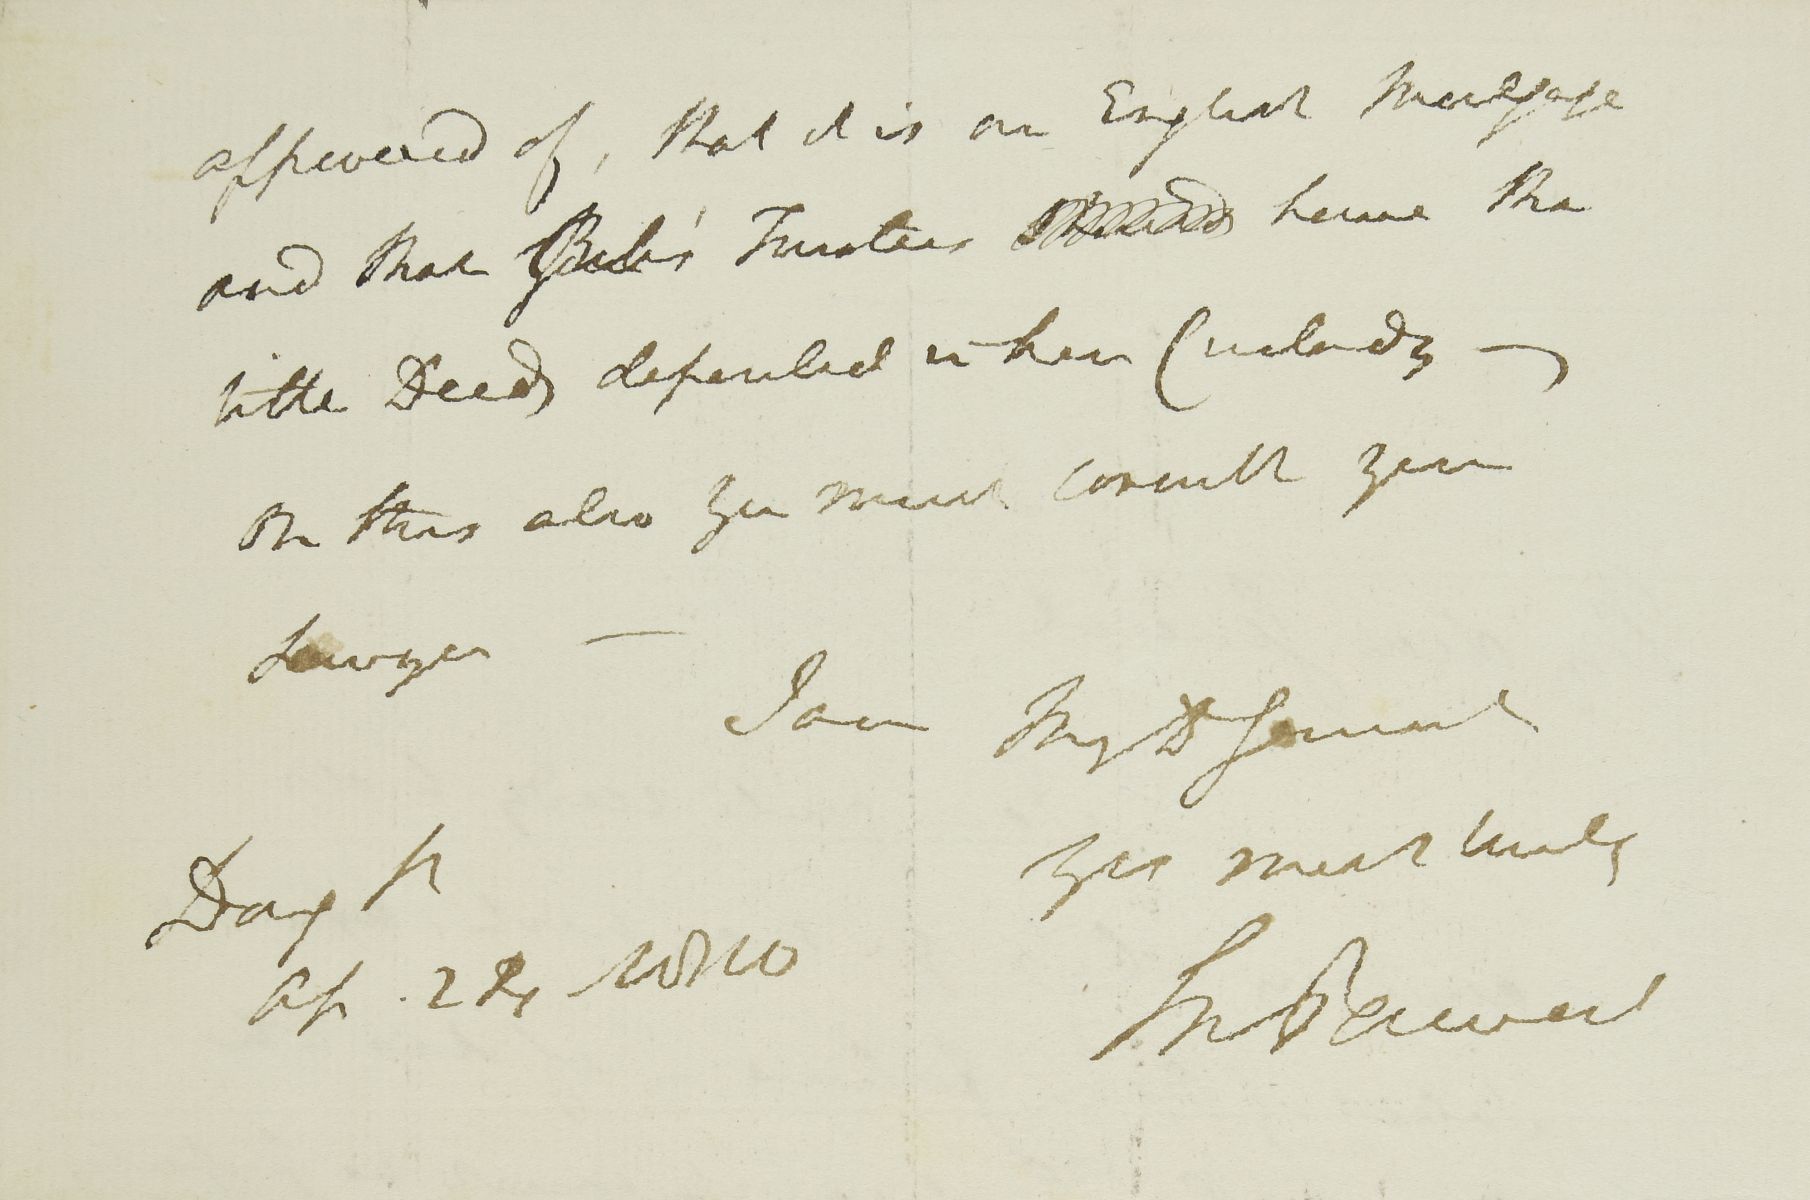 approved of, that it is an English Mortgage
and that Trustees have the
title Deeds deposited in their Custody —
On this also you must consult your
Lawyer —
I am My Dr General
Yrs most truly
Day St
Ap. 1810